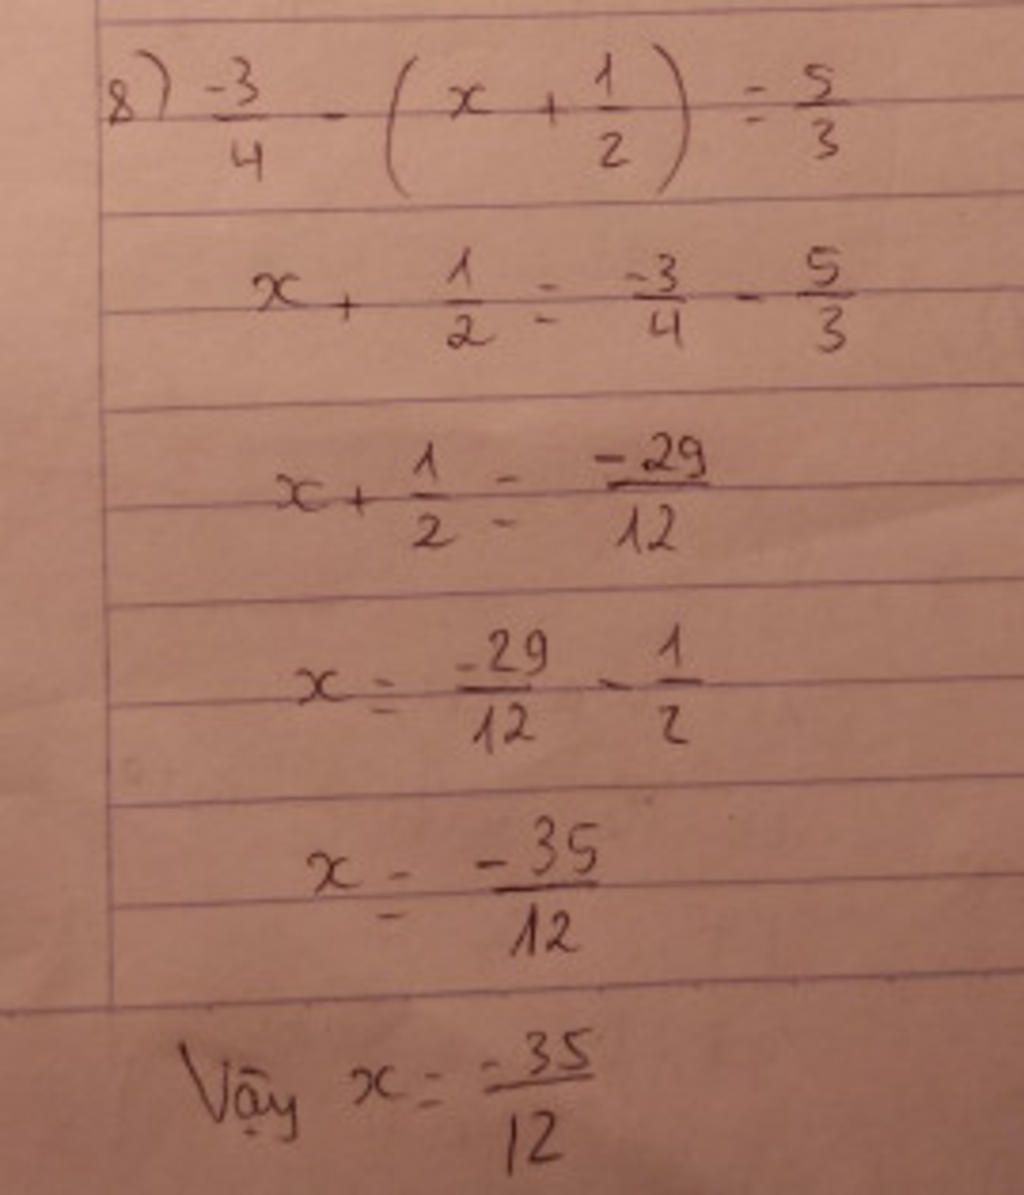 8) -3/4 - (x + 1/2) = 5/3
x + 1/2 = -3/4 - 5/3
x + 1/2 = -29/12
x = -29/12 - 1/2
x = -35/12
Vậy x = -35/12